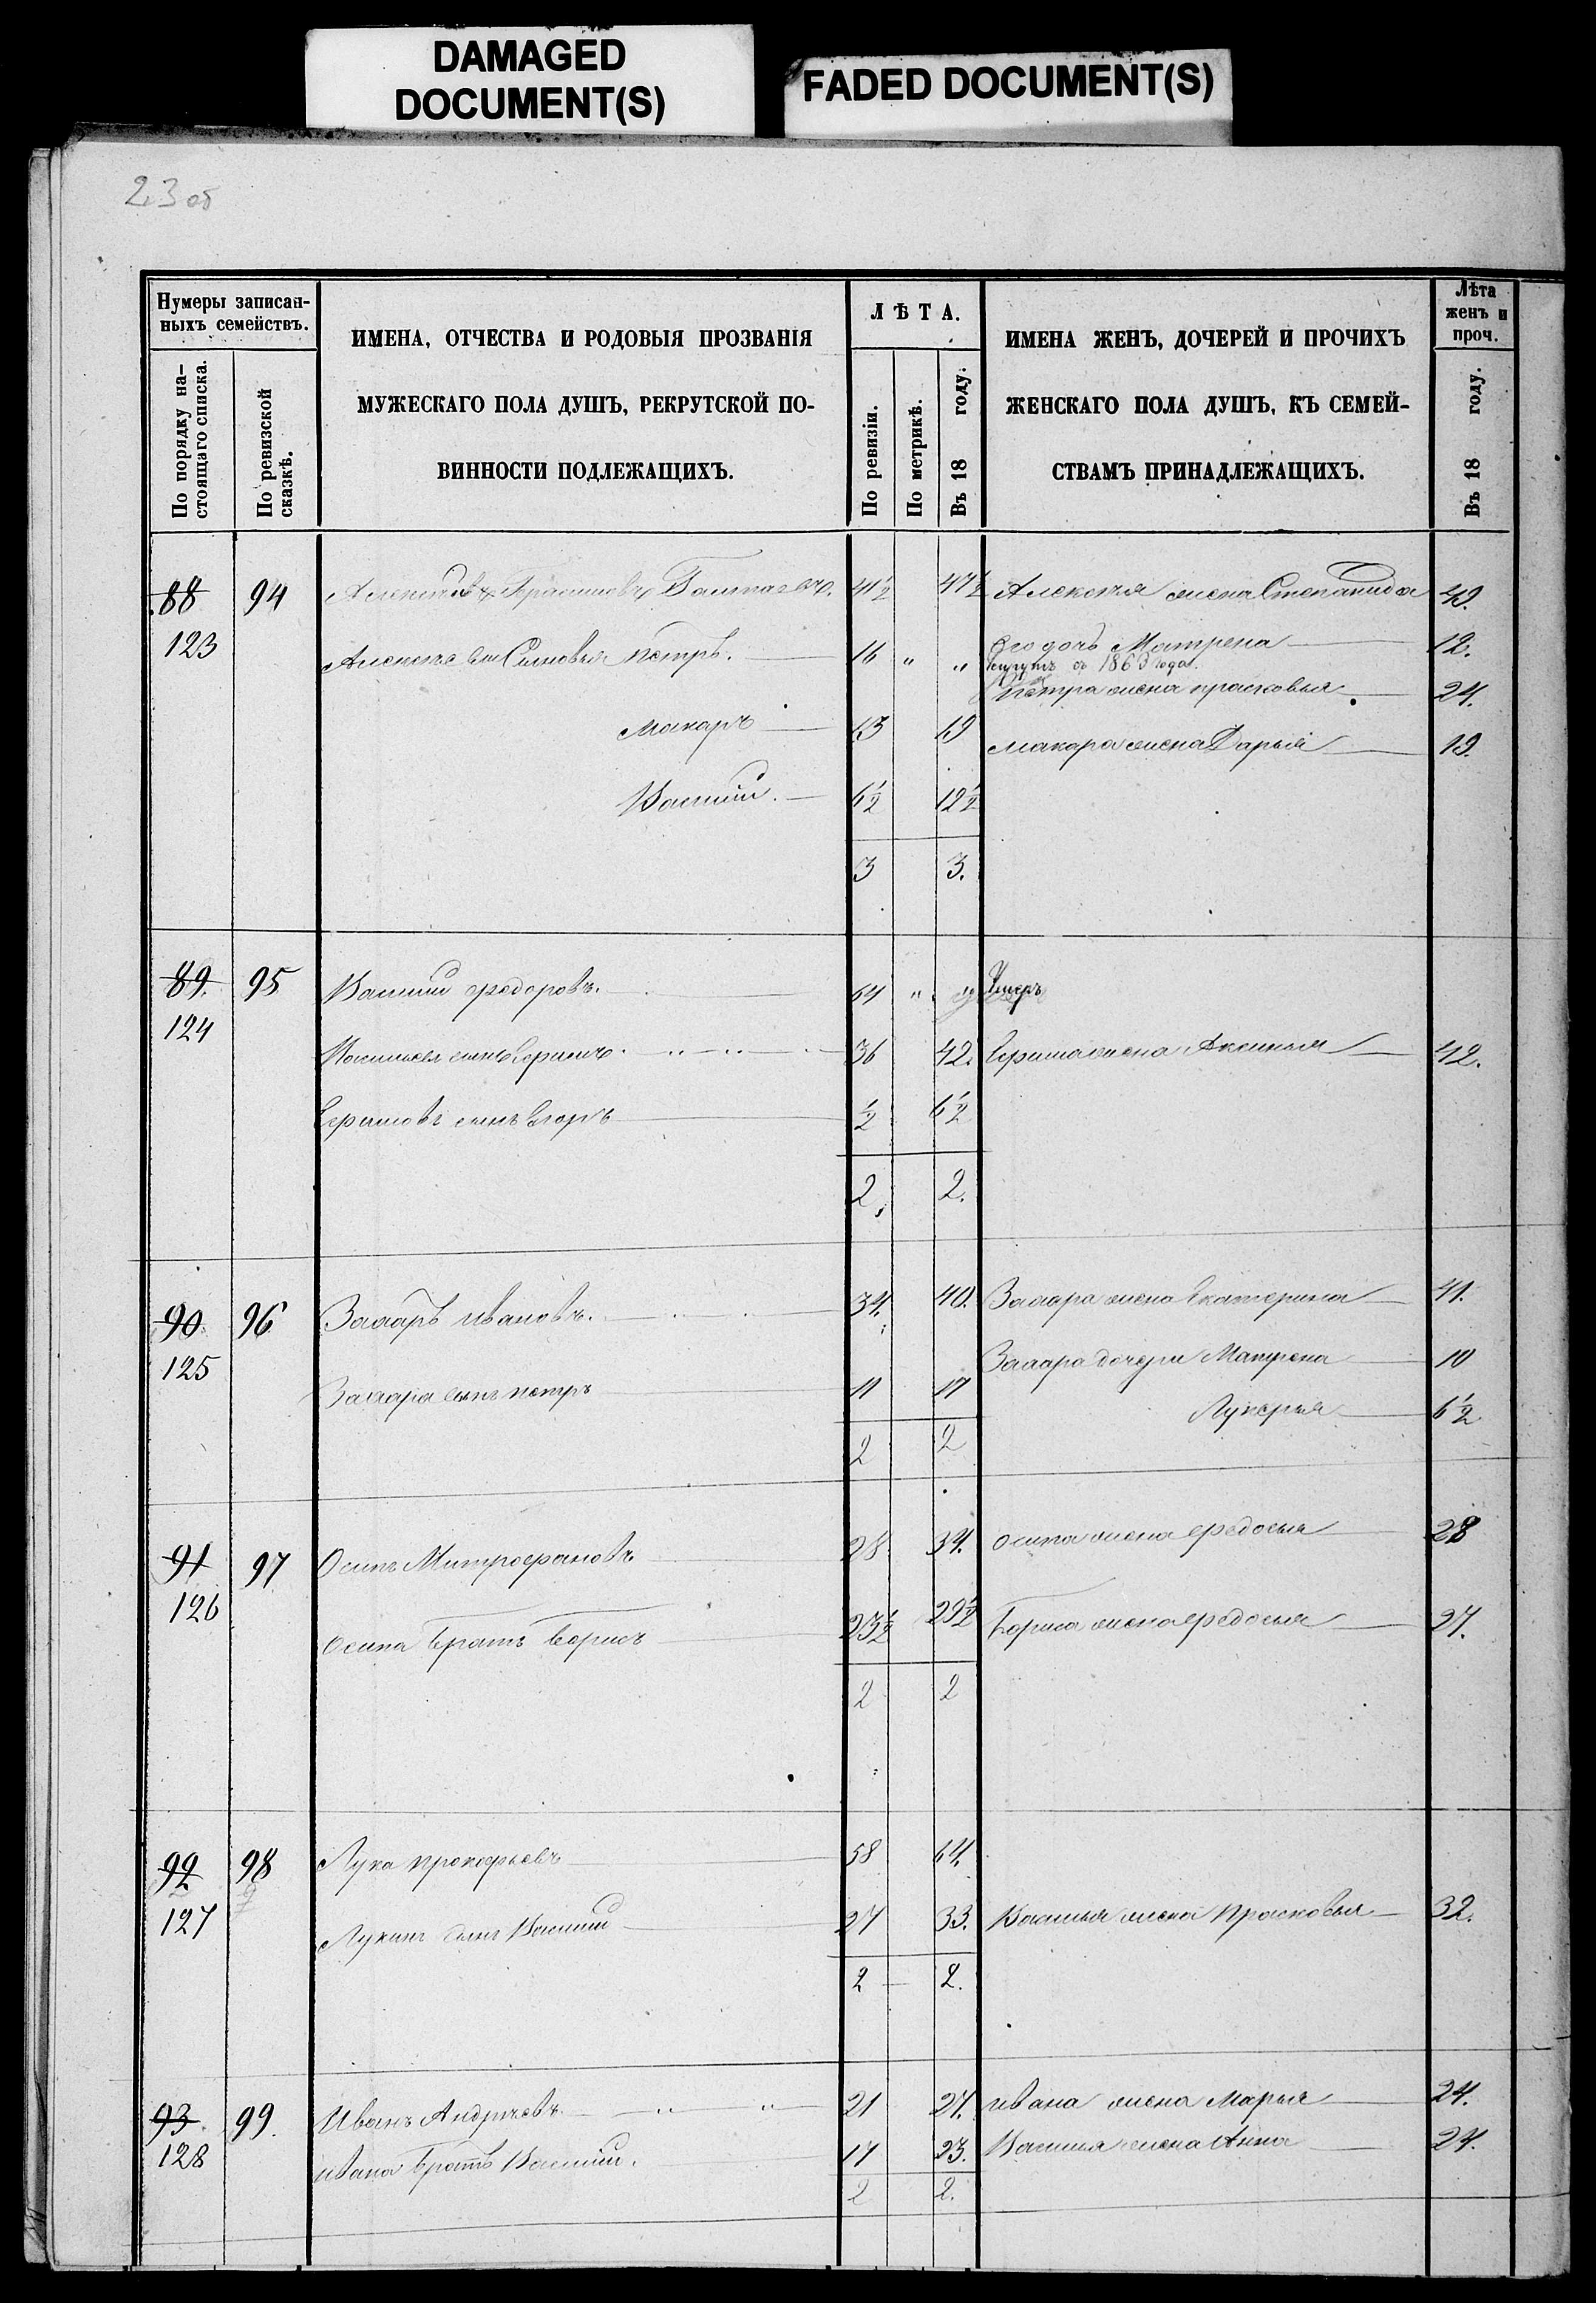 DAMAGED
DOCUMENT(S)
FADED DOCUMENT(S)
23 об
Нумеры записан-
ныхъ семействъ.
По порядку на-
стоящаго списка.
По ревизской
сказкѣ.
ИМЕНА, ОТЧЕСТВА И РОДОВЫЯ ПРОЗВАНІЯ
МУЖЕСКАГО ПОЛА ДУШЪ, РЕКРУТСКОЙ ПО-
ВИННОСТИ ПОДЛЕЖАЩИХЪ.
ЛѢТА.
По ревизіи.
По метрикѣ.
Въ 18 году.
ИМЕНА ЖЕНЪ, ДОЧЕРЕЙ И ПРОЧИХЪ
ЖЕНСКАГО ПОЛА ДУШЪ, КЪ СЕМЕЙ-
СТВАМЪ ПРИНАДЛЕЖАЩИХЪ.
Лѣта
женъ и
проч.
Въ 18 году.
88 94 41½ 47½ Алексѣя жена Степанида 49.
123
Сыновья петръ. 16 " " его дочь Матрена 12.
съ 1863 года.
петра жена прасковья 24.
Макаръ 13 19 макара жена Дарья 19.
Василій. 6½ 12½
3 3.
89. 95 Василий федоровъ. 64 " " Умеръ
124
Васильев сынъ Ефимъ 36 42. Ефима жена Аксинья 42.
Ефимовъ сынъ Егоръ ½ 6½
2. 2.
90. 96 Захаръ ивановъ. 34. 40. Захара жена Екатерина 41.
125
Захара дочери Матрена 10
Захара сынъ петръ 11 17
Лукерья 6½
2 2
91 97 Осипъ Митрофановъ 28 34. осипа жена федосья 28
126
Осипа братъ борисъ 23½ 29½ Бориса жена федосья 27.
2 2
92 98 Лука прокофьевъ 58 64.
127
Лукинъ сынъ Василий 27 33. Василья жена прасковья 32.
2 2.
93. 99. Иванъ Андрѣевъ 21 27. ивана жена Марья 24.
128
ивана братъ Василий. 17 23. Василья жена Анна 24.
2 2.